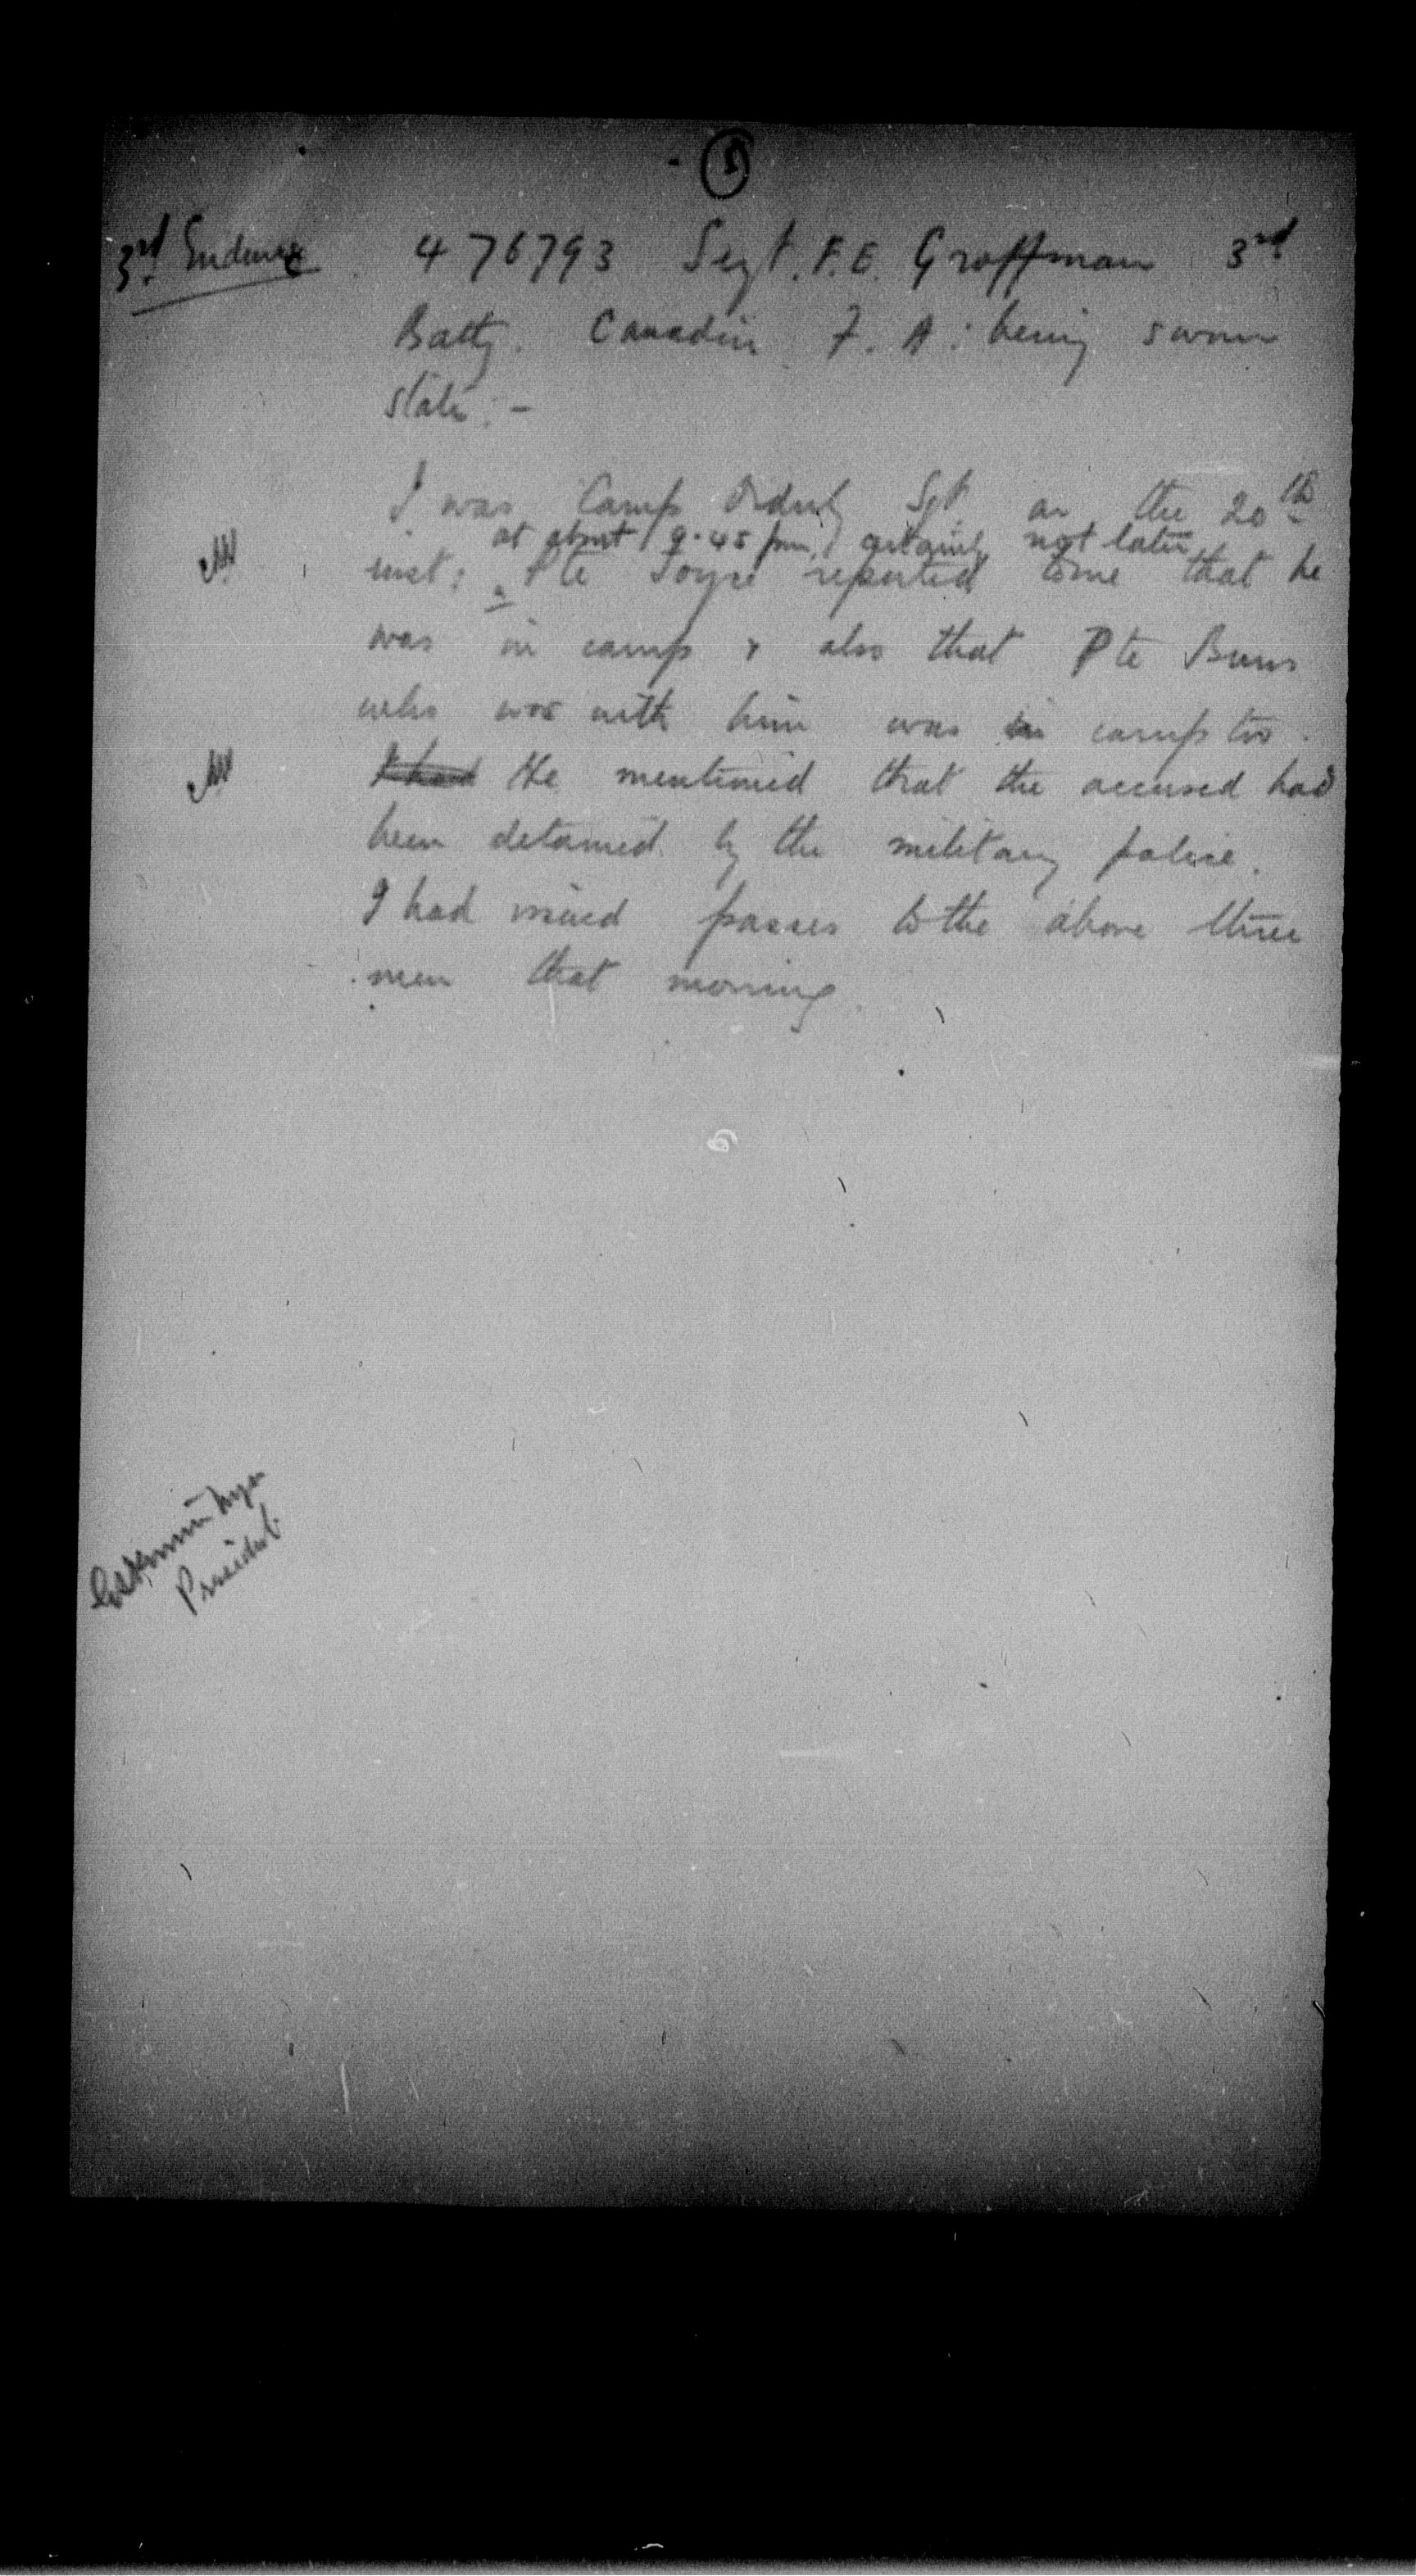 5
3rd Evidence. 476793 Sergt. F. E. Groffman 3rd
Batty. Canadian F. A: being sworn
states:-
I was Camp Orderly Sgt. on the 20th
at about 9.45 pm, certainly not later,
inst: Pte Joyce reported to me that he
was in camp & also that Pte Burns
who was with him was in camp too.
I had He mentioned that the accused had
been detained by the military police.
I had issued passes to the above three
men that morning.
President.